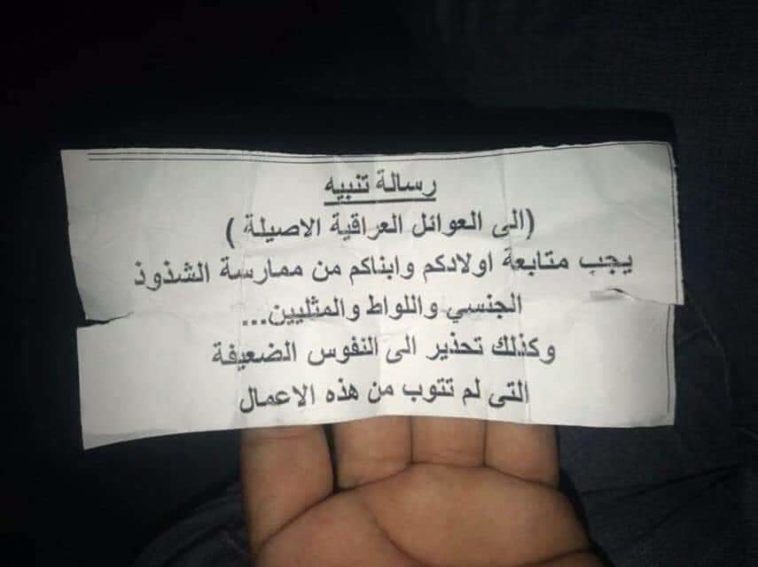 رسالة تنبيه
(الى العوائل العراقية الاصيلة )
يجب متابعة اولادكم وابناكم من ممارسة الشذوذ
الجنسي واللواط والمثليين...
وكذلك تحذير الى النفوس الضعيفة
التي لم تتوب من هذه الاعمال